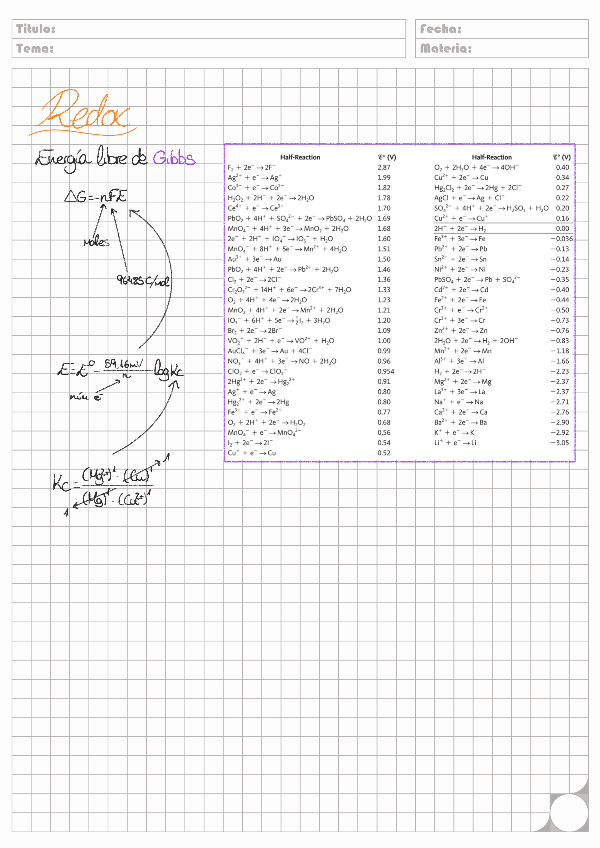 Titulo:
Tema:
Fecha:
Materia:
Redox
Energía libre de Gibbs
ΔG=-nFE
moles
96485 C/mol
E=E° - 59.16mV/n log Kc
núm e⁻
Kc = (Mg²⁺)¹ · (Cu)¹ / (Mg)¹ · (Cu²⁺)¹
1
1
Half-Reaction ℰ° (V)
F₂ + 2e⁻ → 2F⁻ 2.87
Ag²⁺ + e⁻ → Ag⁺ 1.99
Co³⁺ + e⁻ → Co²⁺ 1.82
H₂O₂ + 2H⁺ + 2e⁻ → 2H₂O 1.78
Ce⁴⁺ + e⁻ → Ce³⁺ 1.70
PbO₂ + 4H⁺ + SO₄²⁻ + 2e⁻ → PbSO₄ + 2H₂O 1.69
MnO₄⁻ + 4H⁺ + 3e⁻ → MnO₂ + 2H₂O 1.68
2e⁻ + 2H⁺ + IO₄⁻ → IO₃⁻ + H₂O 1.60
MnO₄⁻ + 8H⁺ + 5e⁻ → Mn²⁺ + 4H₂O 1.51
Au³⁺ + 3e⁻ → Au 1.50
PbO₂ + 4H⁺ + 2e⁻ → Pb²⁺ + 2H₂O 1.46
Cl₂ + 2e⁻ → 2Cl⁻ 1.36
Cr₂O₇²⁻ + 14H⁺ + 6e⁻ → 2Cr³⁺ + 7H₂O 1.33
O₂ + 4H⁺ + 4e⁻ → 2H₂O 1.23
MnO₂ + 4H⁺ + 2e⁻ → Mn²⁺ + 2H₂O 1.21
IO₃⁻ + 6H⁺ + 5e⁻ → ½I₂ + 3H₂O 1.20
Br₂ + 2e⁻ → 2Br⁻ 1.09
VO₂⁺ + 2H⁺ + e⁻ → VO²⁺ + H₂O 1.00
AuCl₄⁻ + 3e⁻ → Au + 4Cl⁻ 0.99
NO₃⁻ + 4H⁺ + 3e⁻ → NO + 2H₂O 0.96
ClO₂ + e⁻ → ClO₂⁻ 0.954
2Hg²⁺ + 2e⁻ → Hg₂²⁺ 0.91
Ag⁺ + e⁻ → Ag 0.80
Hg₂²⁺ + 2e⁻ → 2Hg 0.80
Fe³⁺ + e⁻ → Fe²⁺ 0.77
O₂ + 2H⁺ + 2e⁻ → H₂O₂ 0.68
MnO₄⁻ + e⁻ → MnO₄²⁻ 0.56
I₂ + 2e⁻ → 2I⁻ 0.54
Cu⁺ + e⁻ → Cu 0.52
Half-Reaction ℰ° (V)
O₂ + 2H₂O + 4e⁻ → 4OH⁻ 0.40
Cu²⁺ + 2e⁻ → Cu 0.34
Hg₂Cl₂ + 2e⁻ → 2Hg + 2Cl⁻ 0.27
AgCl + e⁻ → Ag + Cl⁻ 0.22
SO₄²⁻ + 4H⁺ + 2e⁻ → H₂SO₃ + H₂O 0.20
Cu²⁺ + e⁻ → Cu⁺ 0.16
2H⁺ + 2e⁻ → H₂ 0.00
Fe³⁺ + 3e⁻ → Fe -0.036
Pb²⁺ + 2e⁻ → Pb -0.13
Sn²⁺ + 2e⁻ → Sn -0.14
Ni²⁺ + 2e⁻ → Ni -0.23
PbSO₄ + 2e⁻ → Pb + SO₄²⁻ -0.35
Cd²⁺ + 2e⁻ → Cd -0.40
Fe²⁺ + 2e⁻ → Fe -0.44
Cr³⁺ + e⁻ → Cr²⁺ -0.50
Cr³⁺ + 3e⁻ → Cr -0.73
Zn²⁺ + 2e⁻ → Zn -0.76
2H₂O + 2e⁻ → H₂ + 2OH⁻ -0.83
Mn²⁺ + 2e⁻ → Mn -1.18
Al³⁺ + 3e⁻ → Al -1.66
H₂ + 2e⁻ → 2H⁻ -2.23
Mg²⁺ + 2e⁻ → Mg -2.37
La³⁺ + 3e⁻ → La -2.37
Na⁺ + e⁻ → Na -2.71
Ca²⁺ + 2e⁻ → Ca -2.76
Ba²⁺ + 2e⁻ → Ba -2.90
K⁺ + e⁻ → K -2.92
Li⁺ + e⁻ → Li -3.05